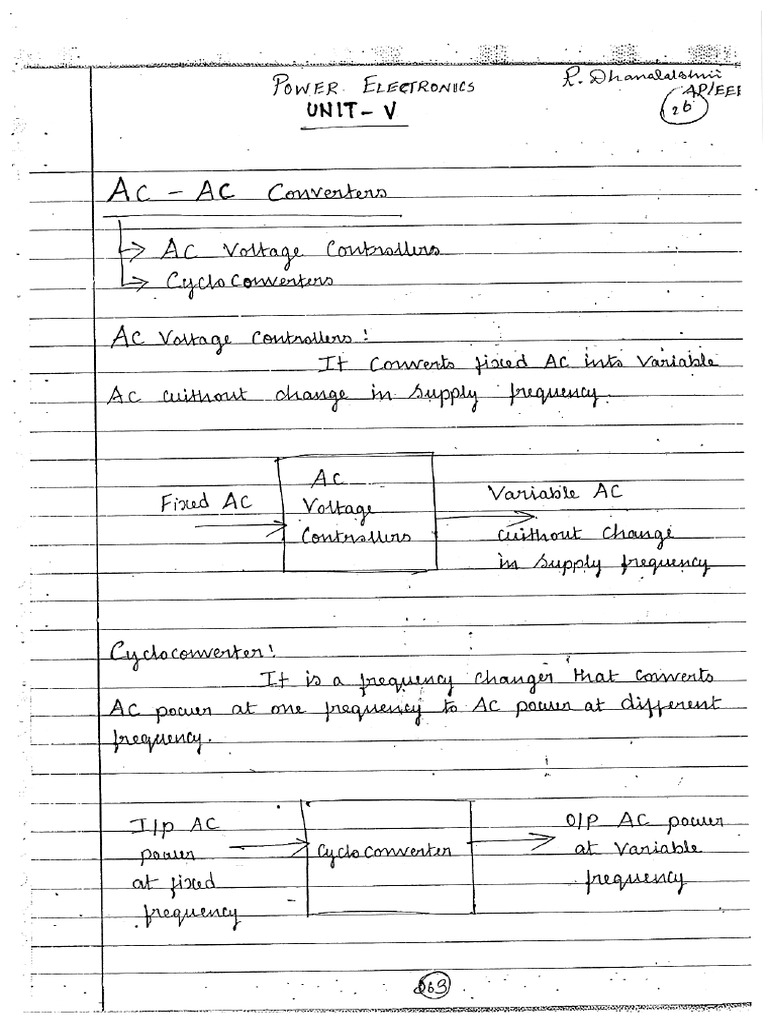 POWER ELECTRONICS
R. Dhanalakshmi
AP/EEE
UNIT - V
26
AC - AC Converters
→ AC Voltage Controllers
→ CycloConverters
AC Voltage Controllers:
It Converts fixed AC into Variable
AC without change in supply frequency.
Fixed AC
AC
Voltage
Controllers
Variable AC
without change
in supply frequency
Cycloconverter:
It is a frequency changer that converts
AC power at one frequency to AC power at different
frequency.
I/p AC
power
at fixed
frequency
CycloConverter
O/P AC power
at Variable
frequency